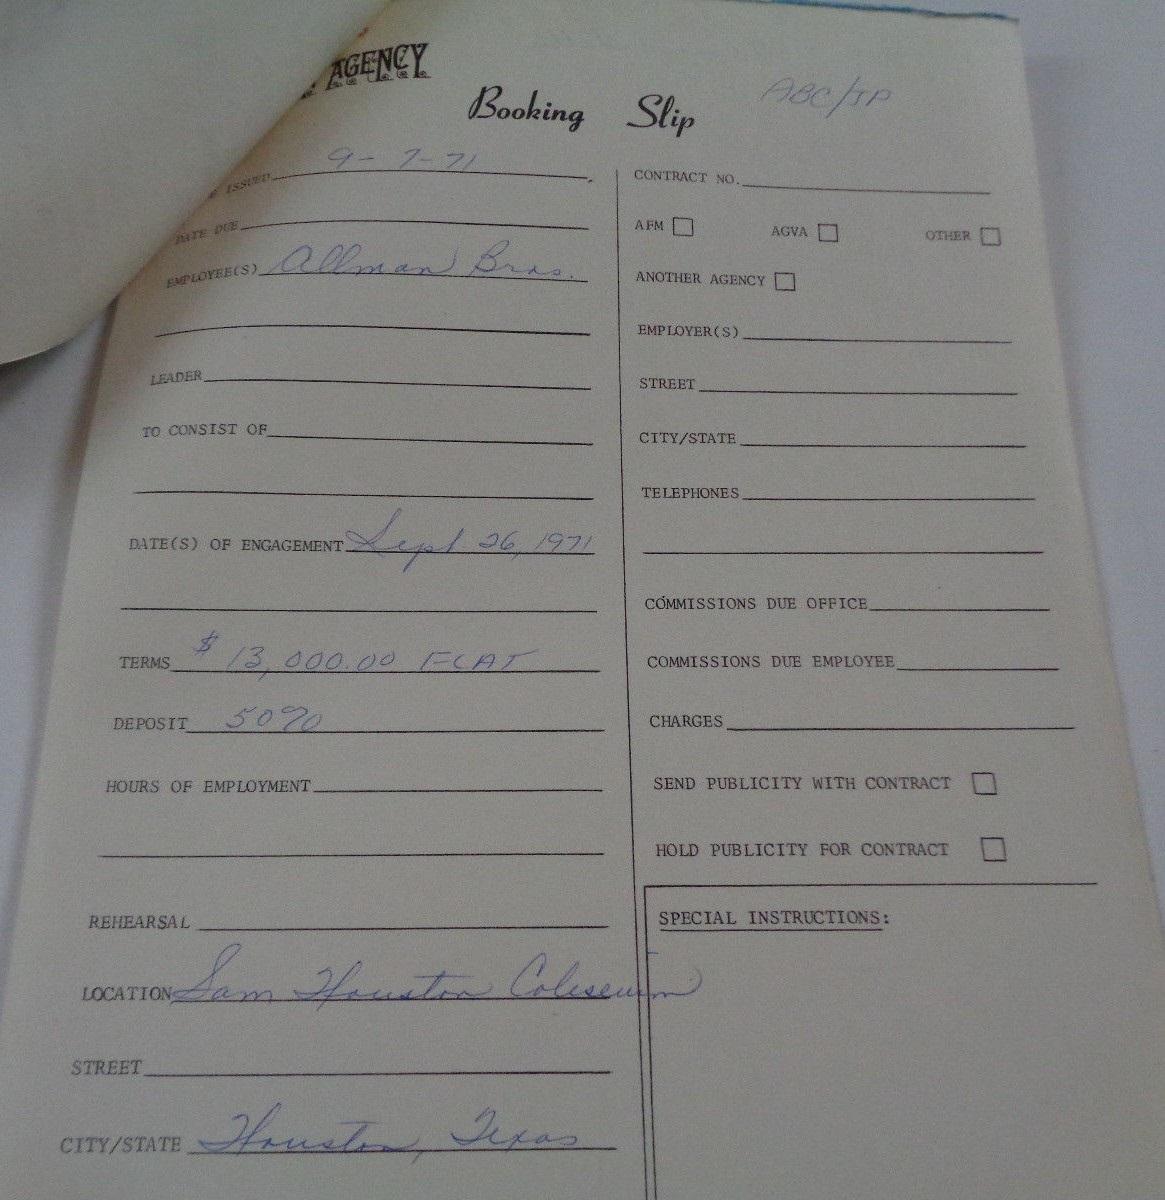 AGENCY
Booking Slip
ABC/JP
ISSUED 9-7-71
DATE DUE
EMPLOYEE(S) Allman Bros.
LEADER
TO CONSIST OF
DATE(S) OF ENGAGEMENT Sept. 26, 1971
TERMS $13,000.00 FLAT
DEPOSIT 50%
HOURS OF EMPLOYMENT
REHEARSAL
LOCATION Sam Houston Coliseum
STREET
CITY/STATE Houston, Texas
CONTRACT NO.
AFM AGVA OTHER
ANOTHER AGENCY
EMPLOYER(S)
STREET
CITY/STATE
TELEPHONES
COMMISSIONS DUE OFFICE
COMMISSIONS DUE EMPLOYEE
CHARGES
SEND PUBLICITY WITH CONTRACT
HOLD PUBLICITY FOR CONTRACT
SPECIAL INSTRUCTIONS: